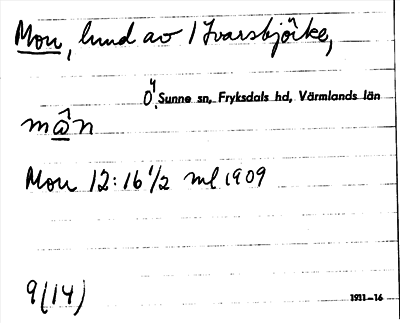 Mon, lund av 1 Ivarsbjörke,
Ö. Sunne sn, Fryksdals hd, Värmlands län
mâ̱n
Mon 12:16 1/2 ml 1909
9(14)
1911—16